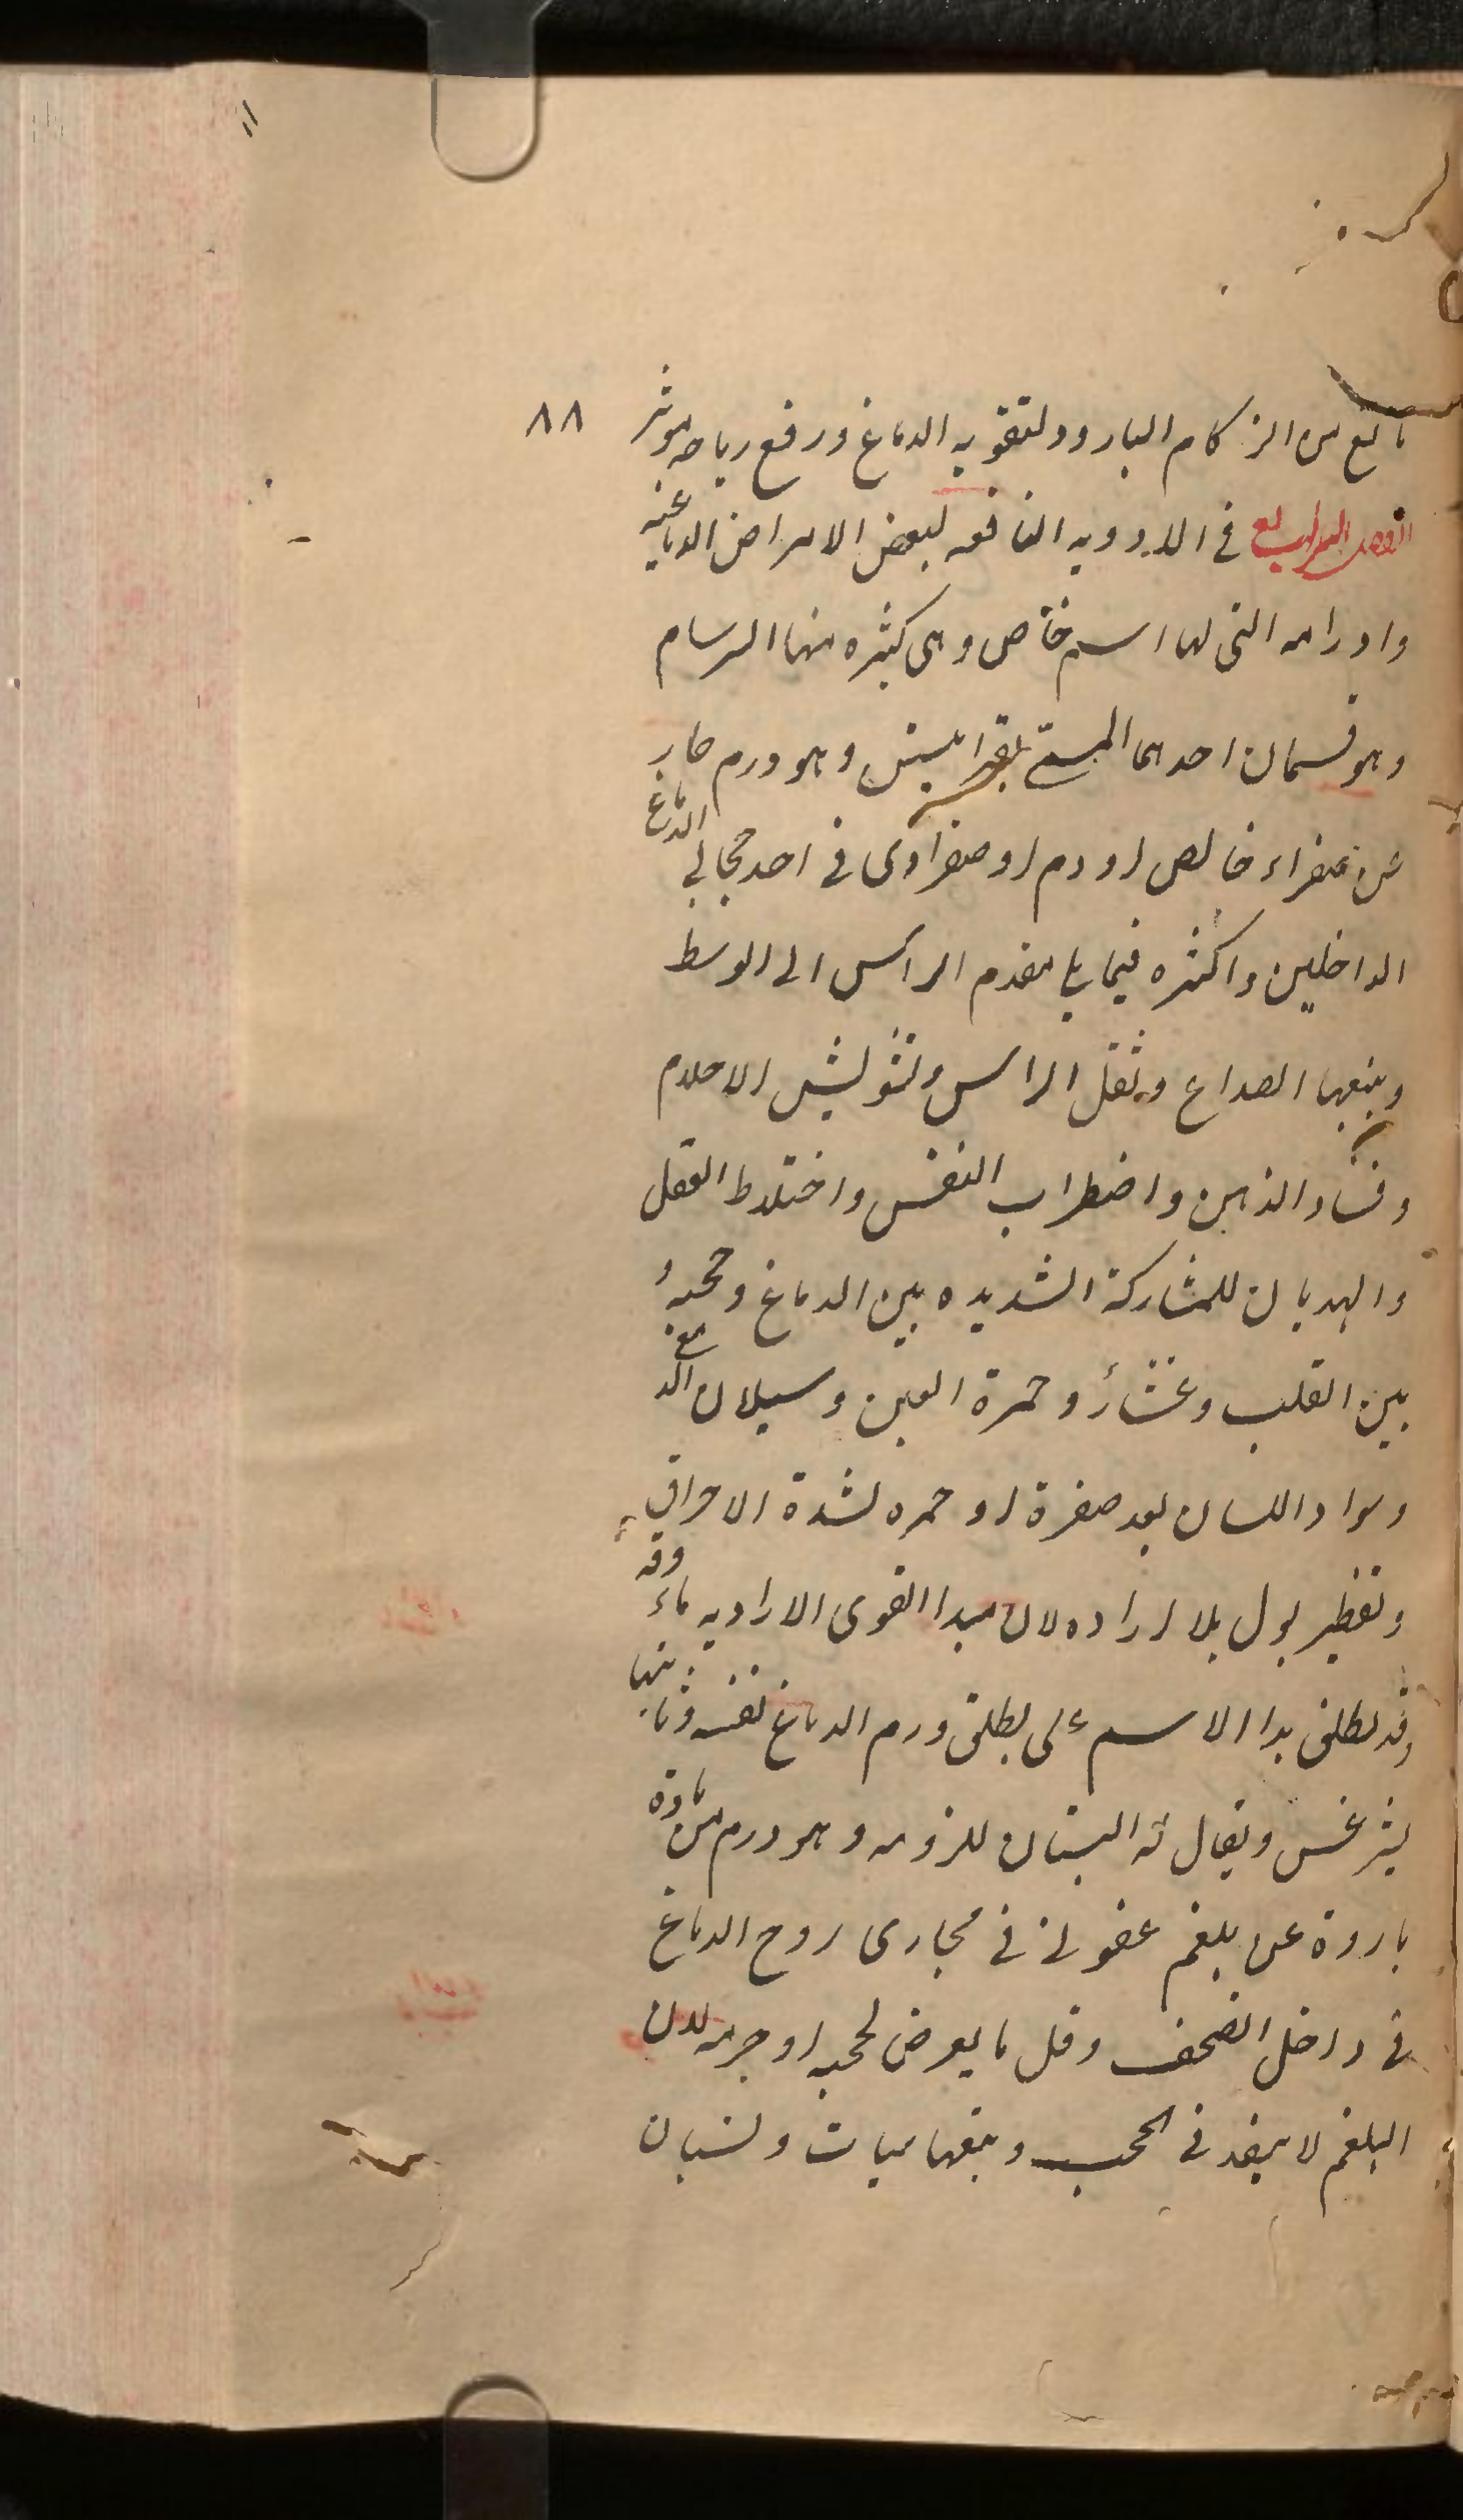 ٨٨
مانع من الزكام البارد ولتقويه الدماغ ورفع رياحه موثر
الفصل الرابع فى الادويه النافعه لبعض الامراض الدماغيه
واورامه التى لها اسم خاص وهى كثيره منها السرسام
وهو قسمان احدهما المسمى بقرانيطس وهو ورم حار
عن صفراء خالص او دم او صفراوى فى احد حجابى الدماغ
الداخلين واكثره فيما يلى مقدم الراس الى الوسط
ويتبعها الصداع وثقل الراس وتشويش الاحلام
وفساد الذهن واضطراب النفس واختلاط العقل
والهذيان للمشاركة الشديده بين الدماغ وحجبه و
بين القلب وغشائه وحمرة العين وسيلان الدمع
وسواد اللسان بعد صفرة او حمره لشدة الاحراق
وتقطير بول بلا اراده لان مبدا القوى الاراديه ماءوفه
وقد يطلق هذا الاسم على مطلق ورم الدماغ نفسه وثانيها
ليثرغس ويقال له النسيان للزومه وهو ورم من مادة
باردة عن بلغم عفونة فى مجارى روح الدماغ
فى داخل القحف وقل ما يعرض لحجبه او جرمه لان
البلغم لا ينفذ فى الحجب ويتبعها سبات ونسيان